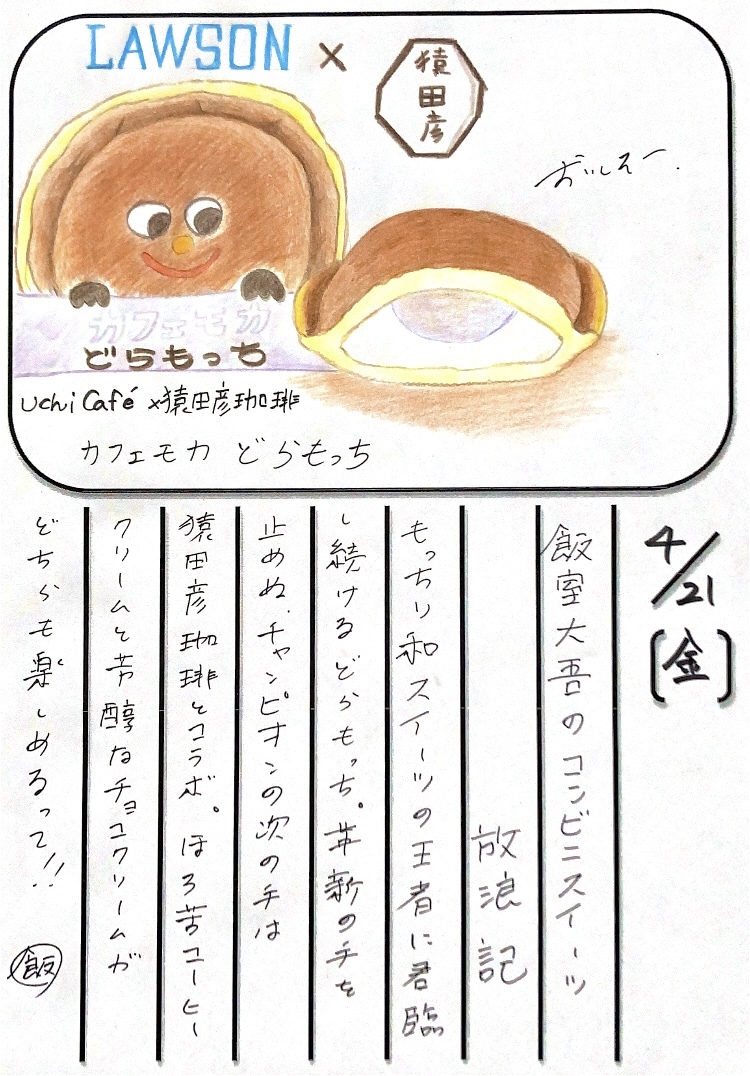 LAWSON × 猿田彦
おいしえー.
カフェモカ
どらもっち
Uchi Café ×猿田彦珈琲
カフェモカ どらもっち
4/21
[金]
飯室大吾のコンビニスイーツ
放浪記
もっちり和スイーツの王者に君臨
し続けるどらもっち。革新の手を
止めぬ、チャンピオンの次の手は
猿田彦珈琲とコラボ。ほろ苦コーヒー
クリームと芳醇なチョコクリームが
どちらも楽しめるって!!
飯